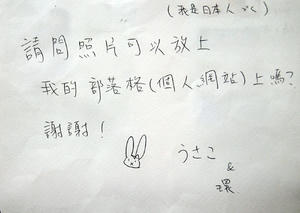 (我是日本人づく)
請問照片可以放上
我的部落格(個人網站)上嗎?
謝謝!
うさこ
&
環